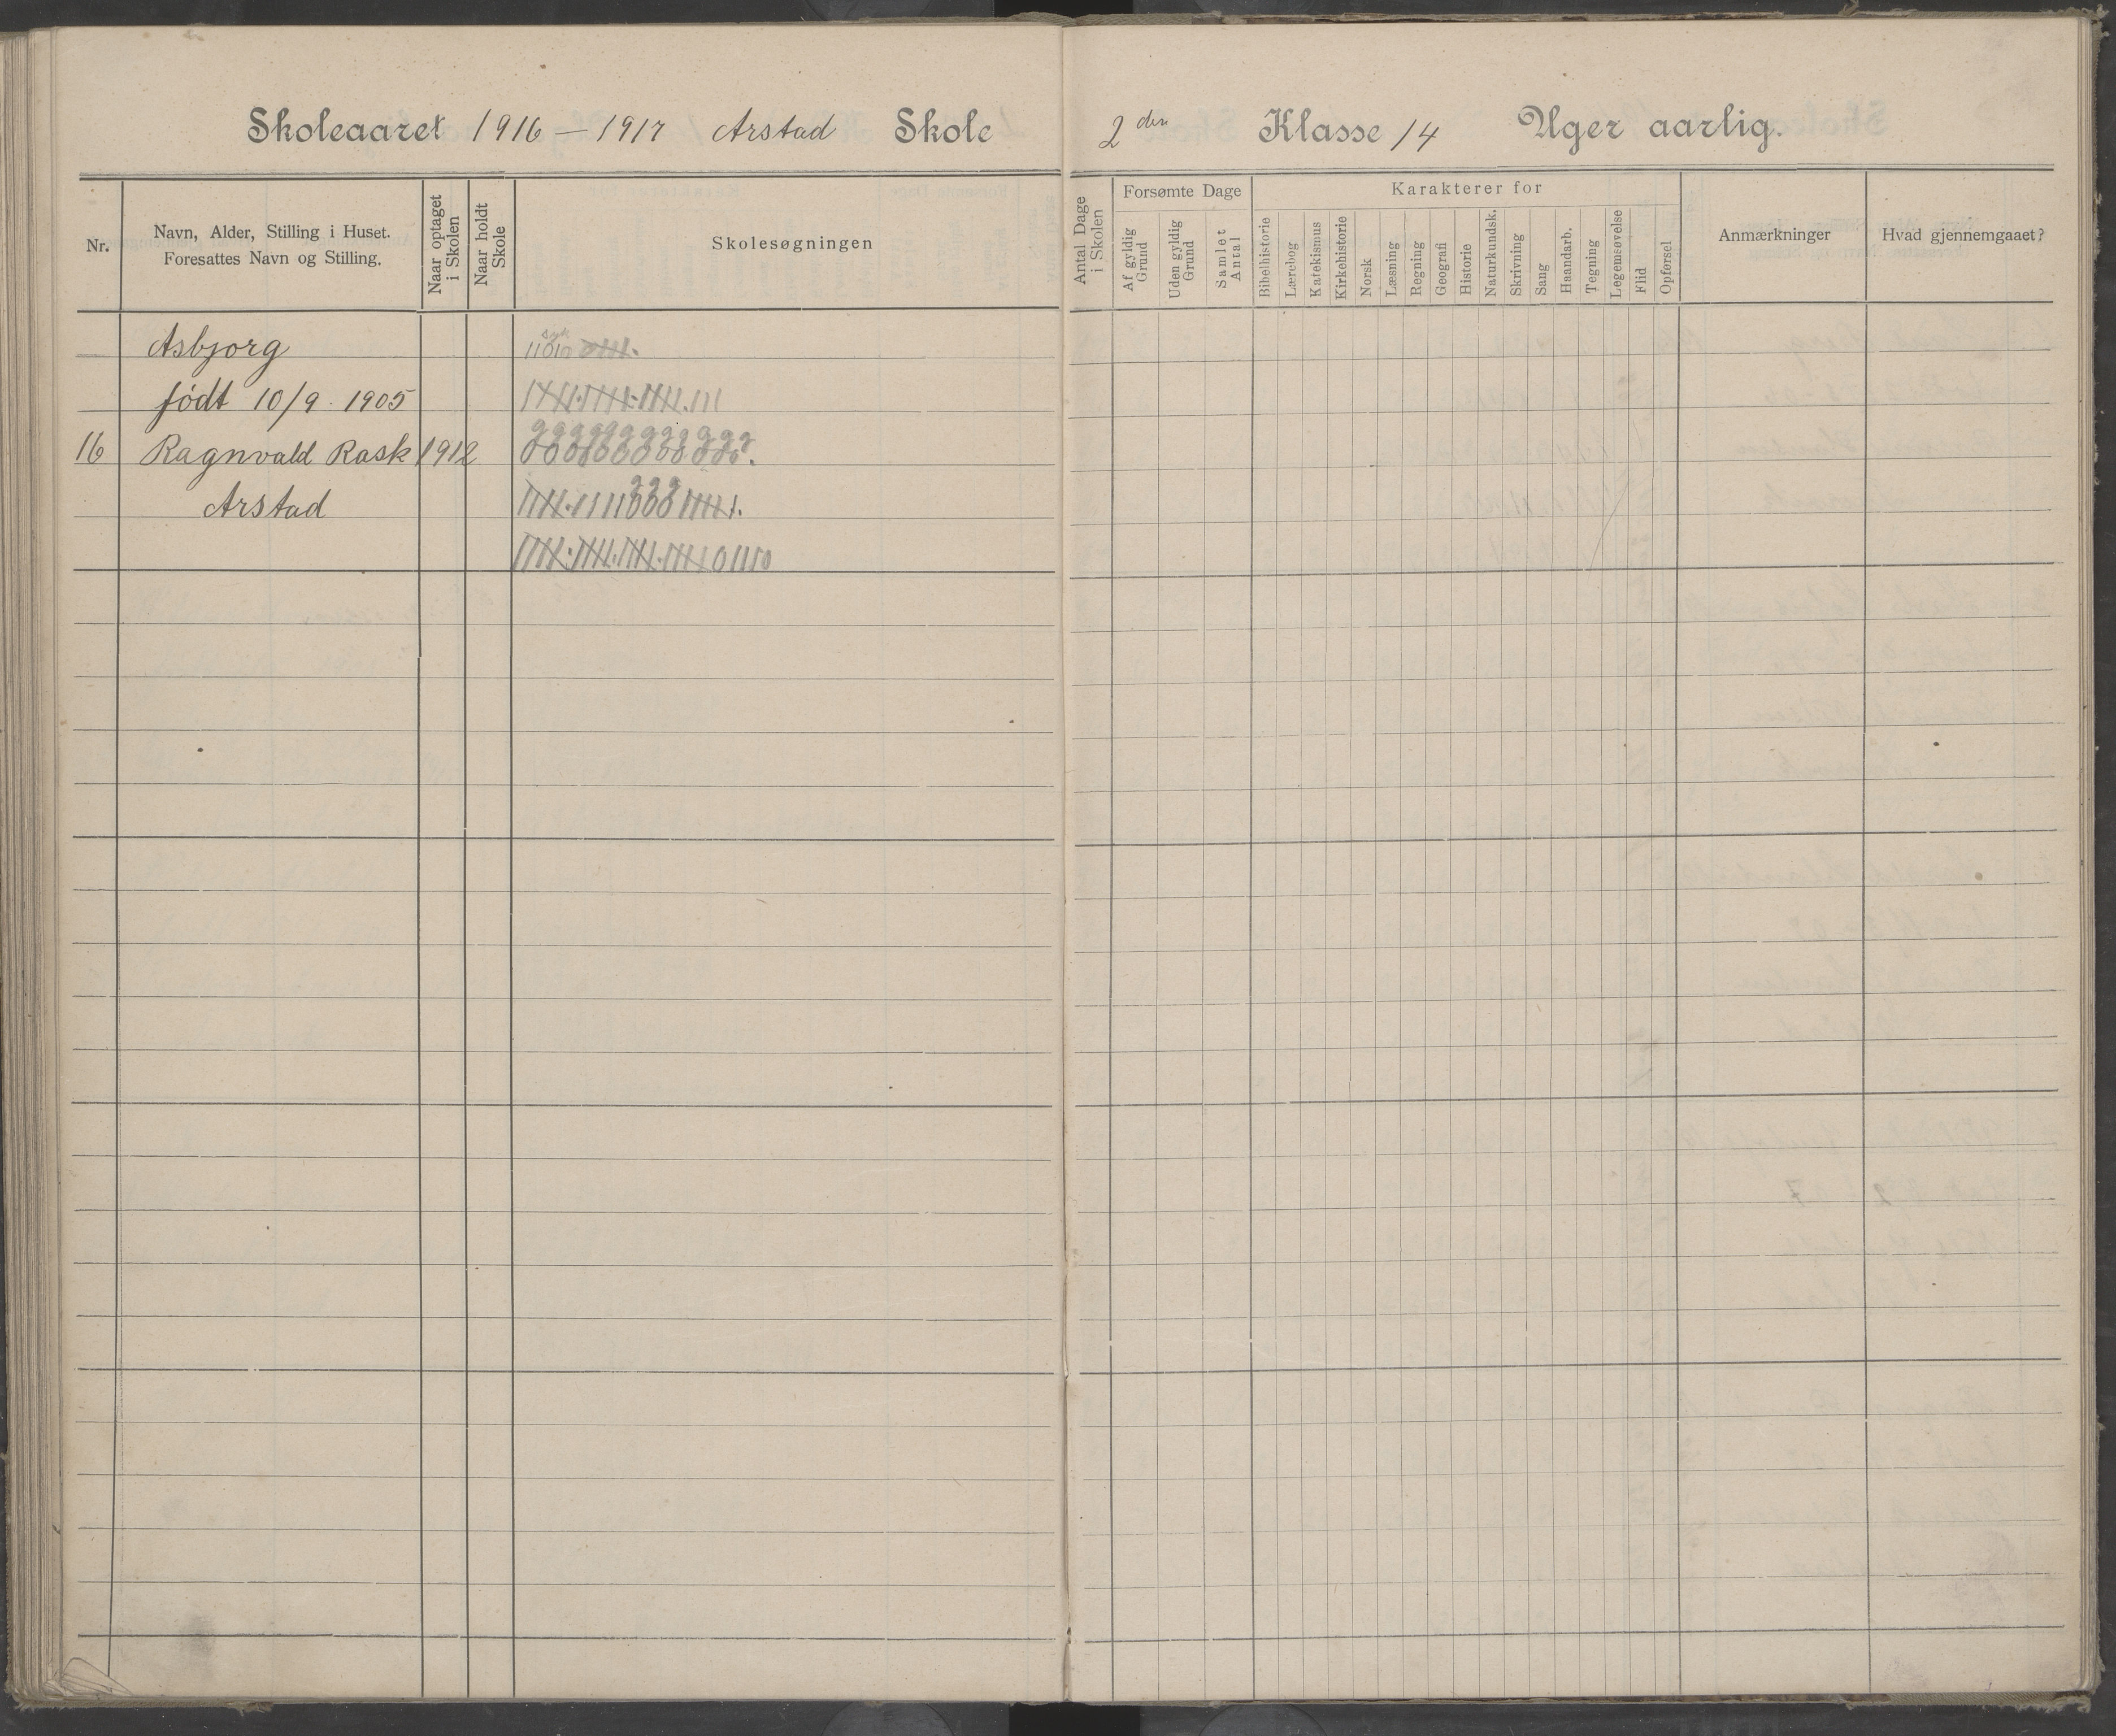 Skoleaaret 1916 – 1917 Arstad Skole 2den Klasse 14 Uger aarlig.
Nr.
Navn, Alder, Stilling i Huset.
Foresattes Navn og Stilling.
Naar optaget
i Skolen
Naar holdt
Skole
Skolesøgningen
Antal Dage
i Skolen
Forsømte Dage
Af gyldig
Grund
Uden gyldig
Grund
Samlet
Antal
Karakterer for
Bibelhistorie
Lærebog
Katekismus
Kirkehistorie
Norsk
Læsning
Regning
Geografi
Historie
Naturkundsk.
Skrivning
Sang
Haandarb.
Tegning
Legemsøvelse
Flid
Opførsel
Anmærkninger
Hvad gjennemgaaet?
Asbjørg
syk
født 10/9 1905
16 Ragnvald Rask 1912
Arstad